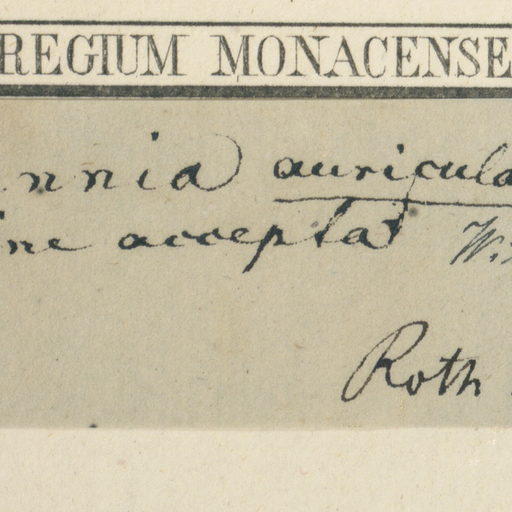 REGIUM MONACENSE
nnia auricula
ine accepta W.
Roth